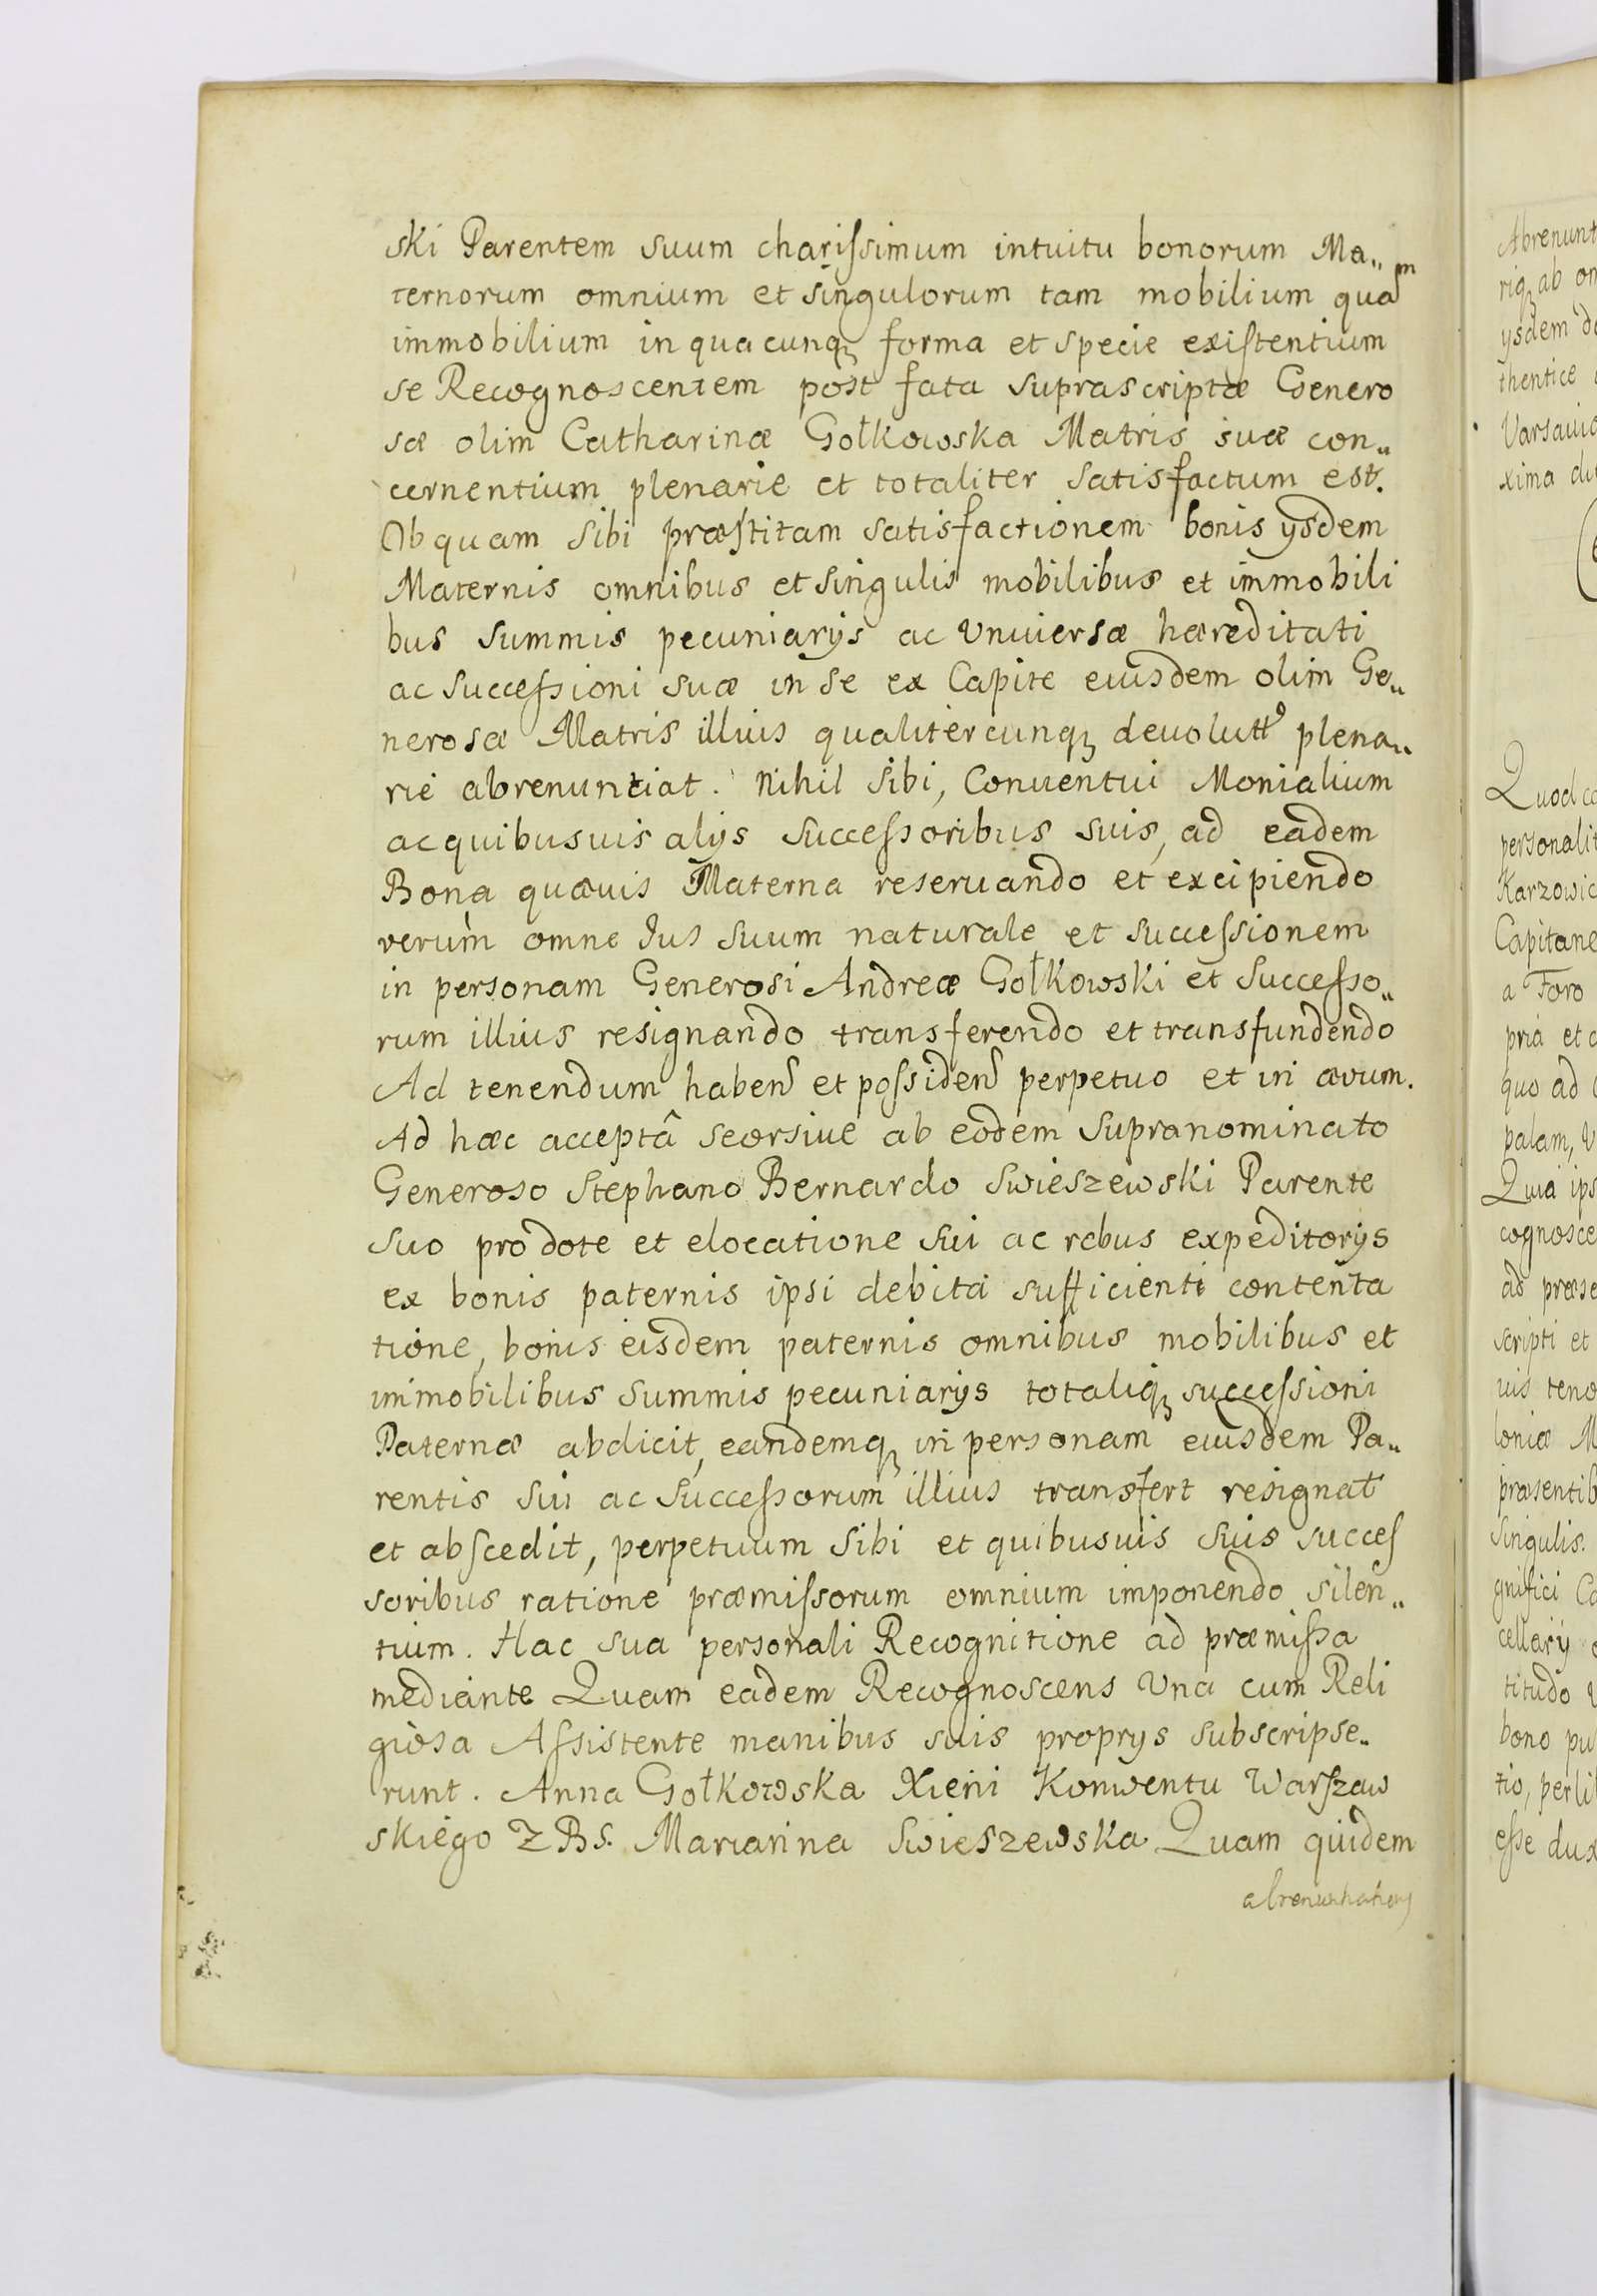 ski Parentem suum charissimum intuitu bonorum Ma„
ternorum omnium et singulorum tam mobilium quam
immobilium in quacunqꝫ forma et specie existentium
se Recognoscentem post fata suprascriptæ Genero
sæ olim Catharinæ Gołkowska Matris suæ con„
cernentium plenarie et totaliter satisfactum est.
Ob quam sibi præstitam satisfactionem bonis ysdem
Maternis omnibus et singulis mobilibus et immobili
bus summis pecuniarijs ac Vniuersæ hæreditati
ac successioni suæ in se ex Capite eiusdem olim Ge„
nerosæ Matris illius qualitercunqꝫ deuolutt⁹ plena„
rie abrenuntiat. Nihil sibi, Conuentui Monialium
ac quibusuis alijs successoribus suis, ad eadem
Bona quæuis Materna reseruando et excipiendo
verum omne Jus suum naturale et successionem
in personam Generosi Andreæ Gołkowski et Successo„
rum illius resignando transferendo et transfundendo
Ad tenendum haben̄ et possiden̄ perpetuo et in ævum.
Ad hæc acceptâ seorsiue ab eodem supranominato
Generoso Stephano Bernardo Swieszewski Parente
suo pro dote et elocatione sui ac rebus expeditorijs
ex bonis paternis ipsi debita sufficienti contenta
tione, bonis eisdem paternis omnibus mobilibus et
immobilibus summis pecuniarijs totaliqꝫ successioni
Paternæ abdicit, eandemqꝫ in personam eiusdem Pa„
rentis sui ac successorum illius transfert resignat
et abscedit, perpetuum sibi et quibusuis suis succes
soribus ratione præmissorum omnium imponendo silen„
tium. Hac sua personali Recognitione ad præmissa
mediante Quam eadem Recognoscens Vna cum Reli
giosa Assistente manibus suis proprijs subscripse„
runt. Anna Gołkowska Xieni Konwentu Warszaw
skiego Z B S. Marianna Swieszewska Quam quidem
abrenuntiationem
Abrenunt
riqꝫ ab om
ysdem de
thentice
Varsauia
xima du
Quod co
personalit
Karzowic
Capitane
a Foro
pria et
quo ad
palam, V
Quia ips
cognosce
ad præse
scripti et
uis teno
loniæ M
præsentib
singulis.
gnifici Ca
cellarij
titudo V
bono pu
tio, perli
esse dux